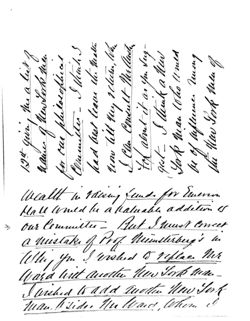 giving me a list of
names of New York men
for our philosophical
Committee - I
had leave the matter
now till my return when
I can consult
about it as you sug-
gest - I think a New
York man who would
be of influence among
the New York men of
wealth in raising funds for Emerson
Hall would be a valuable addition to
our Committee - But I must correct
a mistake of Prof. Münsterberg's in
you I wished to replace Mr.
Ward with another New York man -
I wished to add another New York
man besides Mr Ward, whom I